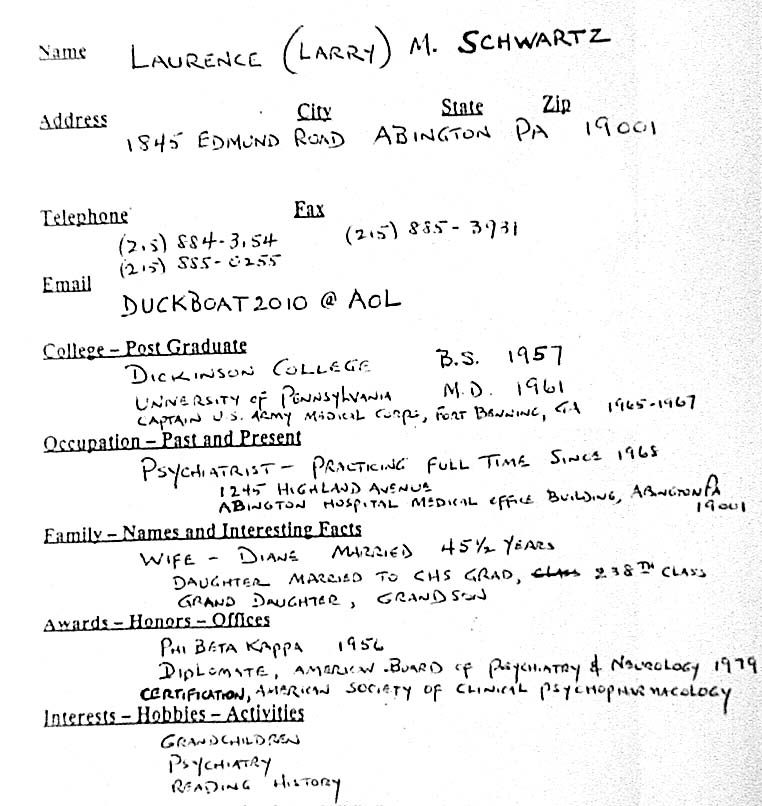 Name LAURENCE (LARRY) M. SCHWARTZ
Address City State Zip
1845 EDMUND ROAD ABINGTON PA 19001
Telephone Fax
(215) 884-3154 (215) 885-3931
(215) 885-0255
Email
DUCKBOAT2010 @ AOL
College – Post Graduate
DICKINSON COLLEGE B.S. 1957
UNIVERSITY OF PENNSYLVANIA M.D. 1961
CAPTAIN U.S. ARMY MEDICAL CORPS, FORT BENNING, GA 1965-1967
Occupation – Past and Present
PSYCHIATRIST – PRACTICING FULL TIME SINCE 1968
1245 HIGHLAND AVENUE
ABINGTON HOSPITAL MEDICAL OFFICE BUILDING, ABINGTON PA
19001
Family – Names and Interesting Facts
WIFE – DIANE MARRIED 45½ YEARS
DAUGHTER MARRIED TO CHS GRAD, CLASS 238TH CLASS
GRAND DAUGHTER, GRANDSON
Awards – Honors – Offices
PHI BETA KAPPA 1956
DIPLOMATE, AMERICAN BOARD OF PSYCHIATRY & NEUROLOGY 1979
CERTIFICATION, AMERICAN SOCIETY OF CLINICAL PSYCHOPHARMACOLOGY
Interests – Hobbies – Activities
GRANDCHILDREN
PSYCHIATRY
READING HISTORY